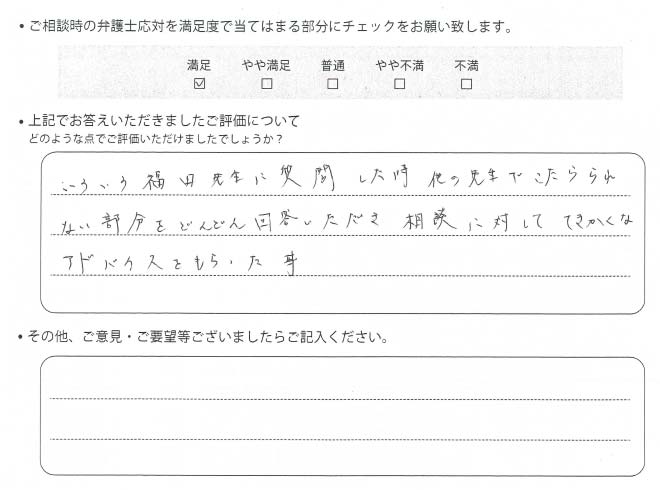 • ご相談時の弁護士応対を満足度で当てはまる部分にチェックをお願い致します。
満足 やや満足 普通 やや不満 不満
☑ □ □ □ □
• 上記でお答えいただきましたご評価について
どのような点でご評価いただけましたでしょうか？
いろいろ福田先生に質問した時他の先生でこたえられ
ない部分をどんどん回答いただき相談に対しててきかくな
アドバイスをもらいた事
• その他、ご意見・ご要望等ございましたらご記入ください。